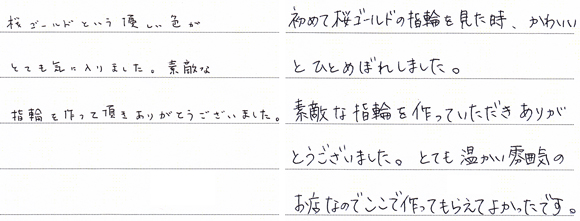 桜ゴールドという優しい色が
とても気に入りました。素敵な
指輪を作って頂きありがとうございました。
初めて桜ゴールドの指輪を見た時、かわいい
とひとめぼれしました。
素敵な指輪を作っていただきありが
とうございました。とても温かい雰囲気の
お店なのでここで作ってもらえてよかったです。